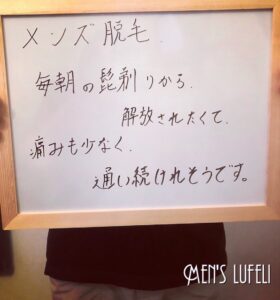 メンズ脱毛.
毎朝の髭剃りから.
解放されたくて.
痛みも少なく.
通い続けれそうです。
MEN'S LUFELI